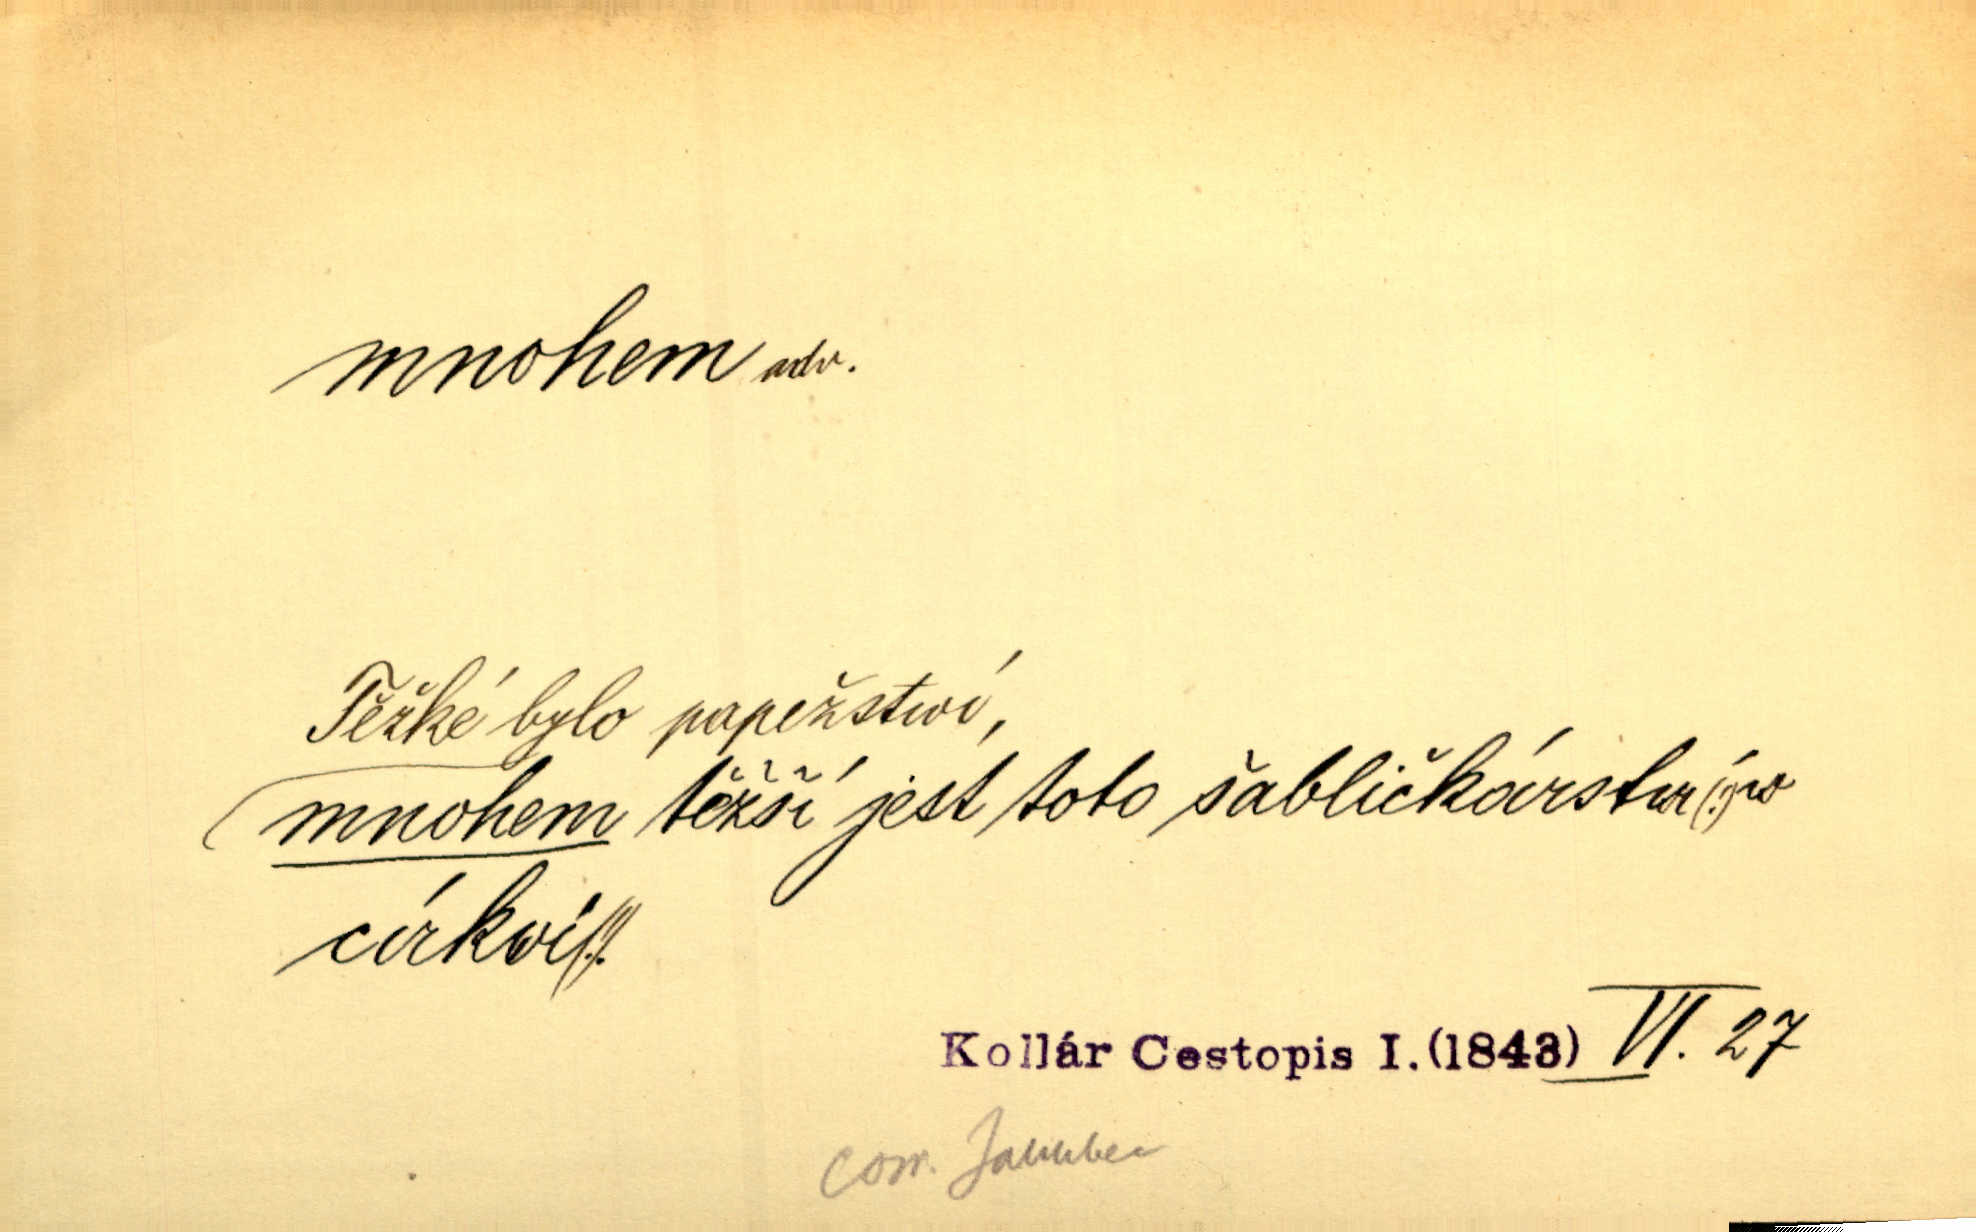 mnohem adv.
Těžké bylo papežstwí,
mnohem těžší jest toto šabličkárstwí (!) w
církwi!!.
Kollár Cestopis I.(1843) VI. 27
com.